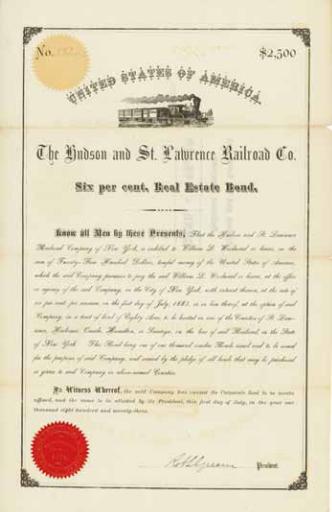 No.
$2,500
UNITED STATES OF AMERICA.
The Hudson and St. Lawrence Railroad Co.
Six per cent. Real Estate Bond.
Know all Men by these Presents, That the Hudson and St. Lawrence
Railroad Company of New York, is indebted to William L. Woodward or bearer, in the
sum of Twenty Five Hundred Dollars, lawful money of the United States of America,
which the said Company promises to pay the said William L. Woodward or bearer, at the office
or agency of the said Company, in the City of New York, with interest thereon, at the rate of
six per cent per annum, on the first day of July, 1883, or in lieu thereof, at the option of said
Company, in a tract of land of Eighty Acres, to be located in one of the Counties of St. Law-
rence, Herkimer, Oneida, Hamilton, or Saratoga, on the line of said Railroad, in the State
of New York. This Bond being one of one thousand similar Bonds issued and to be issued
for the purposes of said Company, and secured by the pledge of all lands that may be purchased
or given to said Company in above-named Counties.
In Witness Whereof, the said Company has caused its Corporate Seal to be hereto
affixed, and the same to be attested by its President, this first day of July, in the year one
thousand eight hundred and seventy-three.
President.